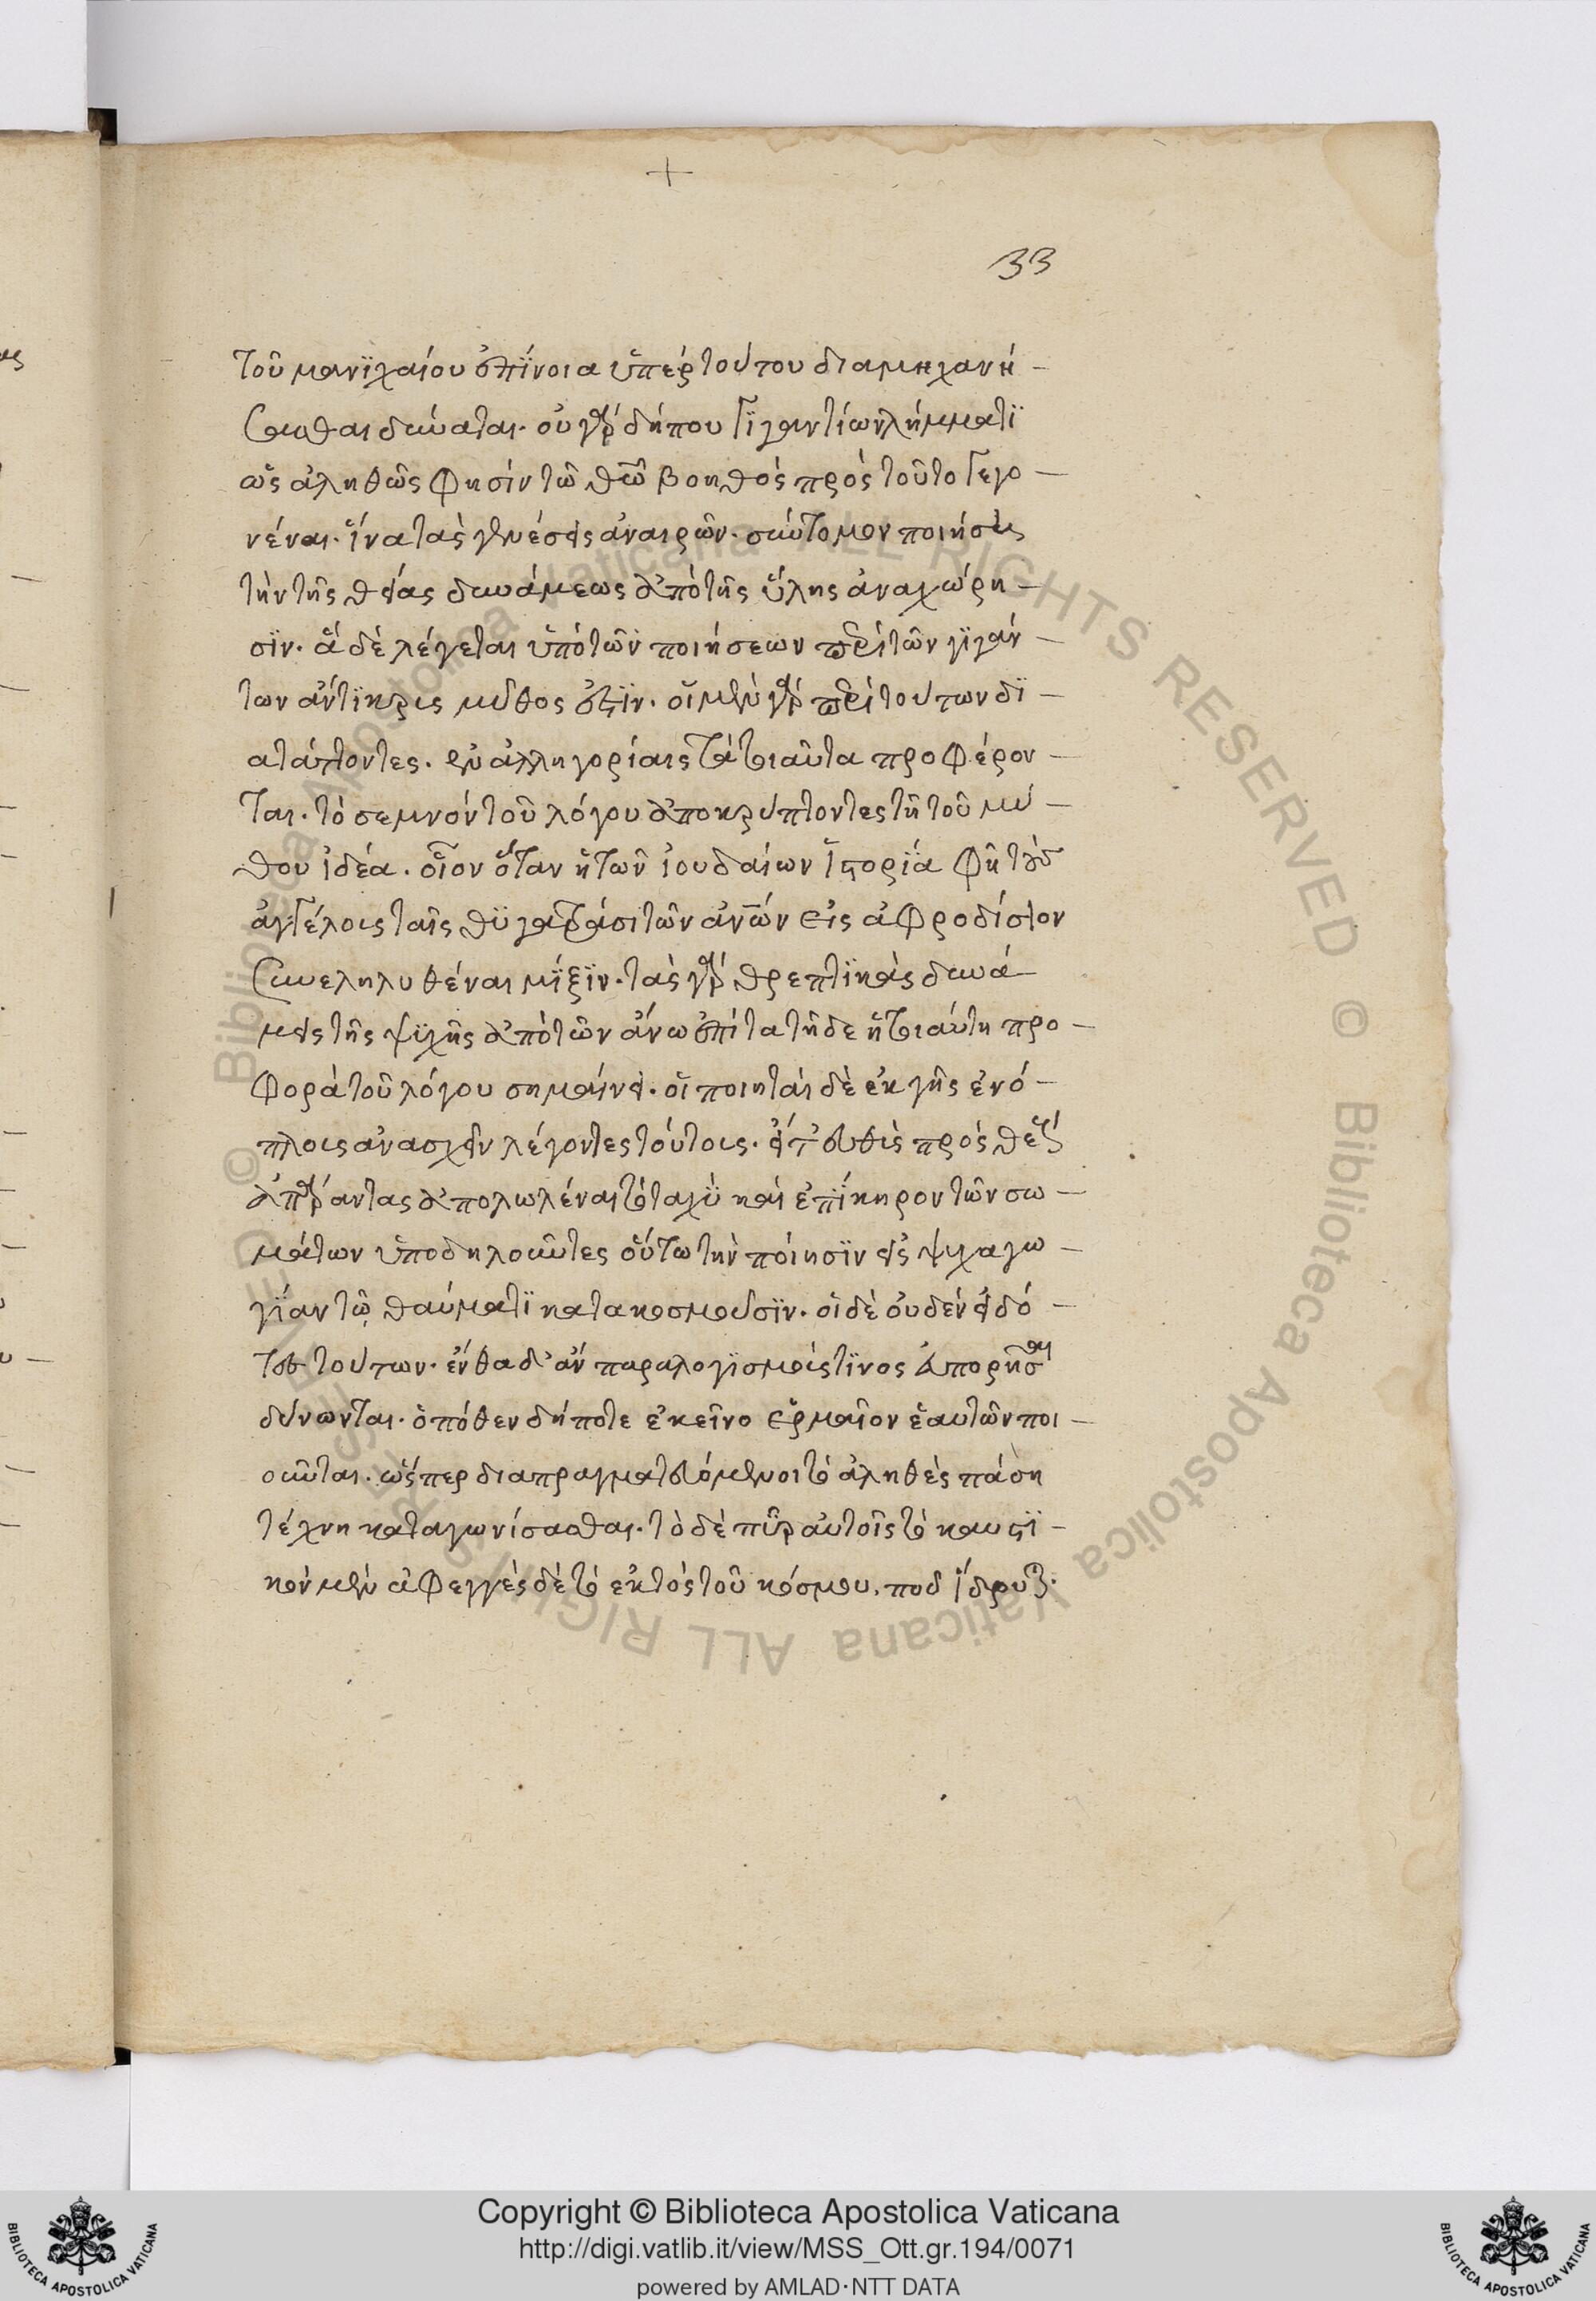 +
33
τοῦ μανϊχαίου ἐπΐνοια ὑπὲρ τούτου διαμηχανή-
σασθαι δύναται. οὐ γὰρ δήπου γϊγαντίων λήμματϊ
ὡς ἀληθῶς φησίν τῶ θεῶ βοηθὸς πρὸς τοῦτο γεγο-
νέναι. ἵνα τὰς γενέσεις ἀναιρῶν. σύντομον ποιήσει
τὴν τῆς θείας δυνάμεως ἀπὸ τῆς ὕλης ἀναχώρη-
σϊν. ἃ δὲ λέγεται ὑπὸ τῶν ποιήσεων περὶ τῶν γϊγάν-
των ἄντϊκρις μῦθος ἐστϊν. οἱ μὲν γὰρ περὶ τούτων δϊ-
ατάττοντες. ἐν ἀλληγορίαις τὰ τοιαῦτα προφέρον-
ται. τὸ σεμνὸν τοῦ λόγου ἀποκρύπτοντες τῆ τοῦ μύ-
θου ἰδέα. οἷον ὅταν ἡ τῶν ἰουδαίων ἱστορΐα φῆ τοὺς
ἀγγέλοις ταῖς θϋγατράσι τῶν ἀνων εἰς ἀφροδίσιον
συνεληλυθέναι μῖξϊν. τὰς γὰρ θρεπτϊκὰς δυνά-
μεις τῆς ψϋχῆς ἀπὸ τῶν ἄνω ἐπὶ τα τῆδε ἡ τοιαύτη προ-
φορὰ τοῦ λόγου σημαίνει. οἱ ποιηταὶ δὲ ἐκ γῆς ἐνό-
πλοις ἀνασχεῖν λέγοντες τούτοις. εἶτ' εὐθὺς πρὸς
ἀπάραντας ἀπολωλέναι τὸ ταχὺ καὶ ἐπΐκηρον τῶν σω-
μάτων ὑποδηλοῦντες οὕτω τὴν ποίησϊν εἰς ψυχαγω-
γΐαν τῶ θαύματϊ κατακοσμοῦσϊν. οἱ δὲ οὐδὲν εἰδό-
τες τούτων. ἔνθα δ' ἂν παραλογϊσμοῖς τϊνος ἀπορῆσθαι
δύνωνται. ὁπόθεν δήποτε ἐκεῖνο ἑρμαῖον ἑαυτῶν ποι-
οῦνται. ὥσπερ διαπραγματευόμενοι τὸ ἀληθὲς πάση
τέχνη καταγωνίσασθαι. τὸ δὲ πῦρ αὐτοῖς τὸ καυστϊ-
κὸν μὲν ἀφεγγὲς δὲ τὸ ἐκτὸς τοῦ κόσμου. ποδ ἵδρυται.
Copyright © Biblioteca Apostolica Vaticana
http://digi.vatlib.it/view/MSS_Ott.gr.194/0071
powered by AMLAD·NTT DATA